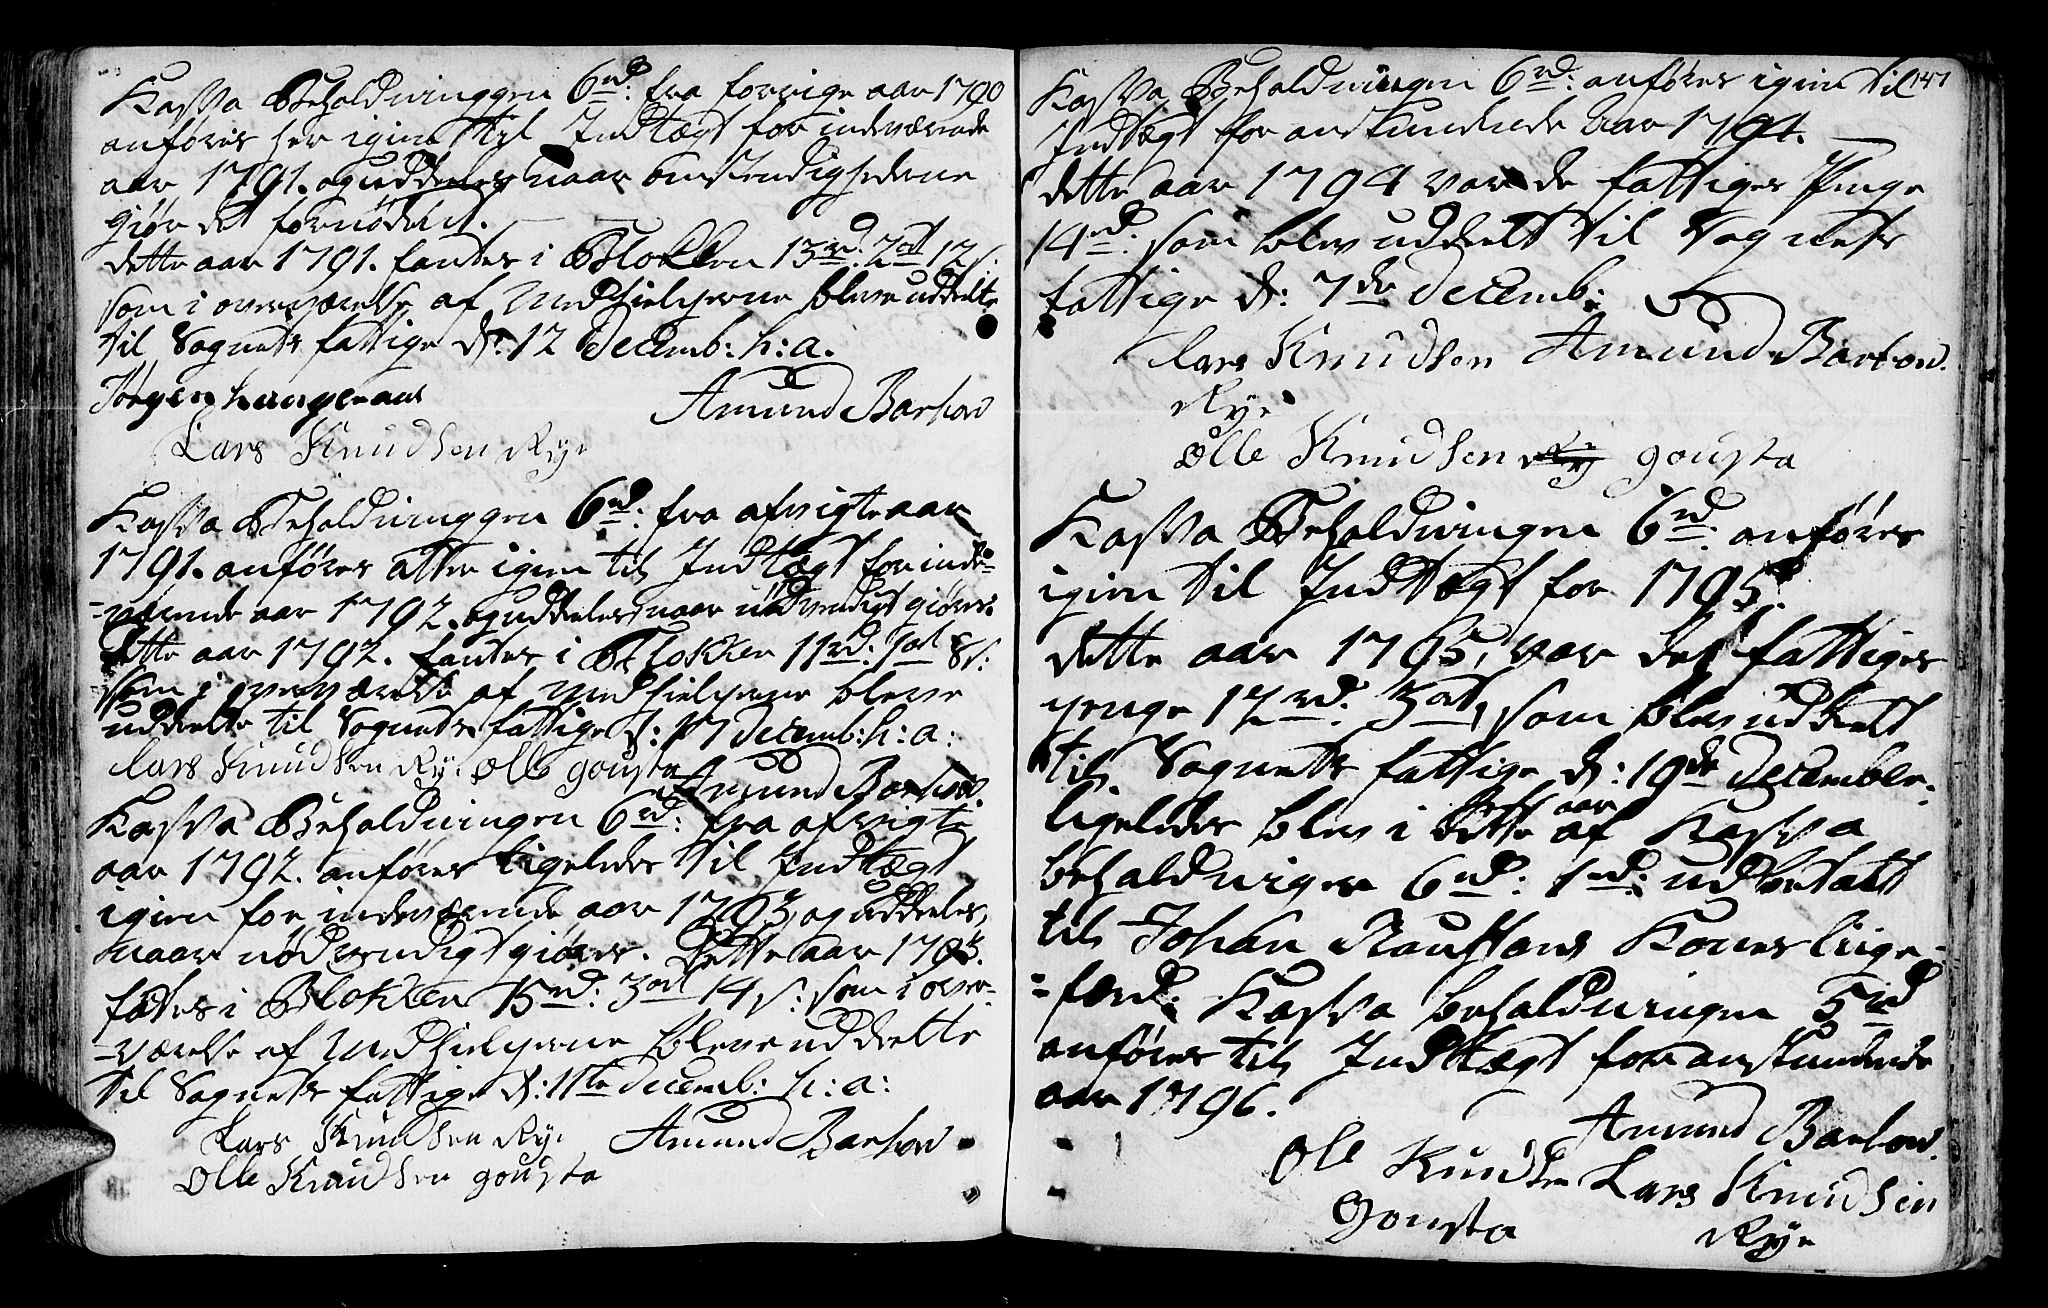 Kassa Beholdninggen 6rd: fra forrige aar 1790
anföres her igien till Indtægt for indeværende
aar 1791. og uddeeles naar omstændighederne
giör det fornödent.
dette aar 1791. fantes i Blokken 13rd. 2ort 12 s:
som i overværelse af Medhielperne bleve uddelte
til Sognets fattige d: 12 Decemb: h: a.
Jörgen haugeraas Amund Barhow
Lars Knudsen Rye
Kassa Beholdninggen 6rd: fra afvigte aar
1791. anföres atter igien til Indtægt for inde-
-værende aar 1792. og uddeles naar nödvendigt giöres.
Dette aar 1792. fantes i Blokken 11rd: 1ort 8 s:
som i overværelse af Medhielperne bleve
uddelte til Sognets fattige d: 17 Decemb: h: a:
Lars Knudsen Rye Olle gousta Amund Barhow.
Kassa Beholdningen 6rd: fra afvigte
aar 1792. anföres ligeledes til Indtægt
igien for indeværende aar 1793, og uddeeles,
naar nödvendigt giöres. Dette aar 1793.
fantes i Blokken 15rd: 3ort 14 s: som i over-
-værelse af Medhielperne bleve uddeelte
til Sognets fattige d: 11te Decemb: h: a:
Lars Knudsen Rye Amund Barhow
Olle Knudsen gousta
147
Kassa Beholdningen 6rd: anföres igien til
Indtægt for anstundende Aar 1794.
dette aar 1794 var de fattiges Penge
14rd: som blev uddeelt til Sognets
fattige d: 7de Decemb:
Lars Knudsen Amund Barhow.
Rye
Olle Knudsen Ry gousta
Kassa Beholdningen 6rd. anföres
igien til Indtægt for 1795.
dette aar 1795, var de fattiges
penge 17rd. 3ort, som blev uddeelt
til Sognets fattige d: 19de December.
ligeledes blev i dette aar af Kassa
beholdningen 6rd: 1rd: udbetalt
til Johan Haustans Kones liige-
-færd. Kassa beholdningen 5rd
anföres til Indtægt for anstundende
aar 1796.
Amund Barhow.
Ole Knudsen Lars Knudsen
gousta Rye